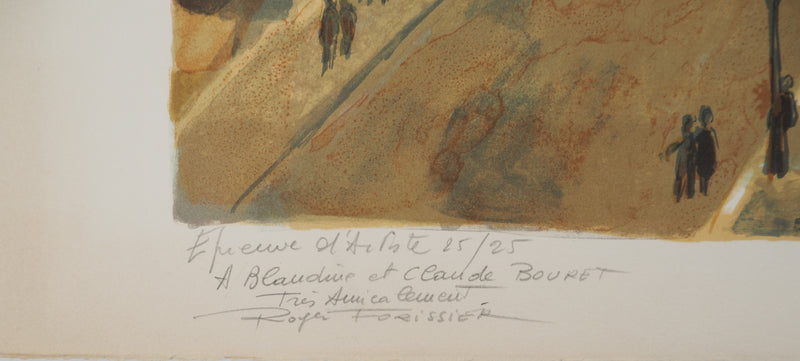 Epreuve d'Artiste 25/25
A Blandine et Claude BOURET
Très Amicalement
Roger FORISSIER